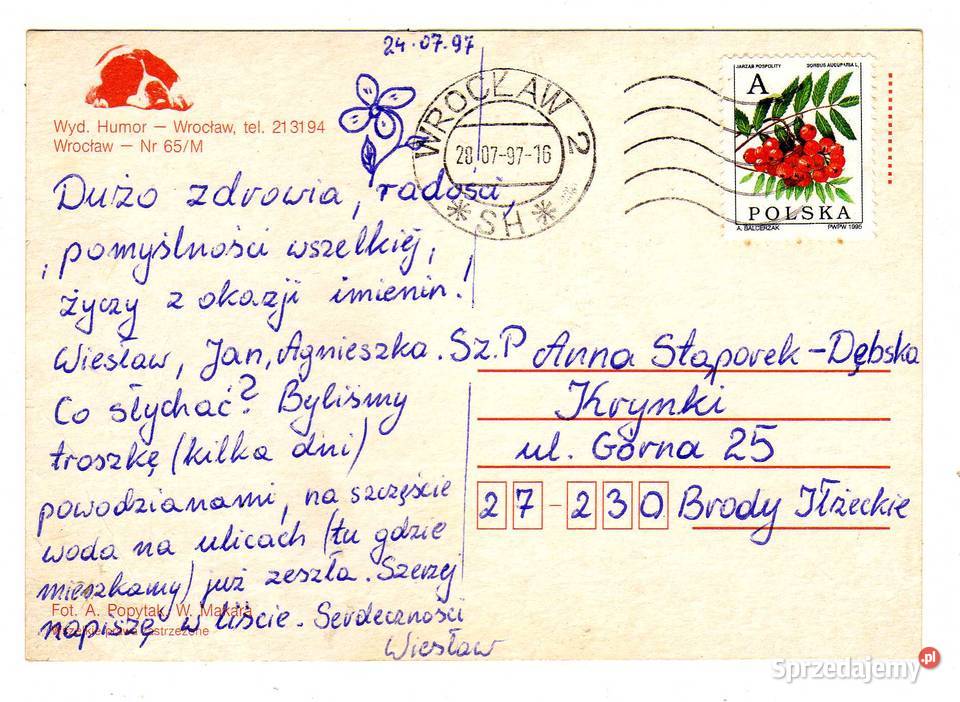 24.07.97
Wyd. Humor – Wrocław, tel. 213194
Wrocław – Nr 65/M
WROCŁAW 2
28-07-97-16
SH
A
JARZĄB POSPOLITY
SORBUS AUCUPARIA L.
POLSKA
A. BALCERZAK
PWPW 1995
Dużo zdrowia, radości,
pomyślności wszelkiej,
życzy z okazji imienin!
Wiesław, Jan, Agnieszka.
Co słychać? Byliśmy
troszkę (kilka dni)
powodzianami, na szczęście
woda na ulicach (tu gdzie
mieszkamy) już zeszła. Szerzej
napiszę w liście. Serdeczności
Wiesław
Sz.P Anna Stąporek-Dębska
Krynki
ul. Górna 25
27-230 Brody Iłżeckie
Fot. A. Popytak, W. Makara
Wszelkie prawa zastrzeżone
Sprzedajemy.pl